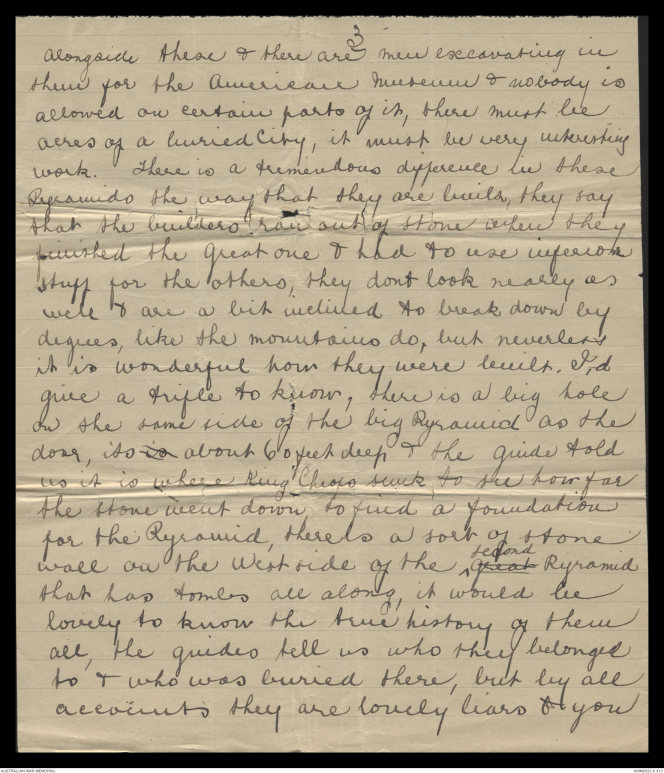 3
alongside these & there are men excavating in
them for the American Museum & nobody is
allowed on certain parts of it, there must be
acres of a buried City, it must be very interesting
work. There is a tremendous difference in these
Pyramids the way that they are built, they say
that the builders ran out of stone when they
finished the Great one & had to use inferior
stuff for the others, they dont look nearly as
well & are a bit inclined to break down by
degrees, like the mountains do, but neverless
it is wonderful how they were built. I,d
give a trifle to know, there is a big hole
on the same side of the big Pyramid as the
door, its is about 60 feet deep & the guide told
us it is where King Cheops sunk to see how far
the stone went down to find a foundation
for the Pyramid, there is a sort of stone
wall on the West side of the Great second Pyramid
that has tombs all along, it would be
lovely to know the true history of them
all, the guides tell us who they belonged
to & who was buried there, but by all
accounts they are lovely liars & you
AUSTRALIAN WAR MEMORIAL